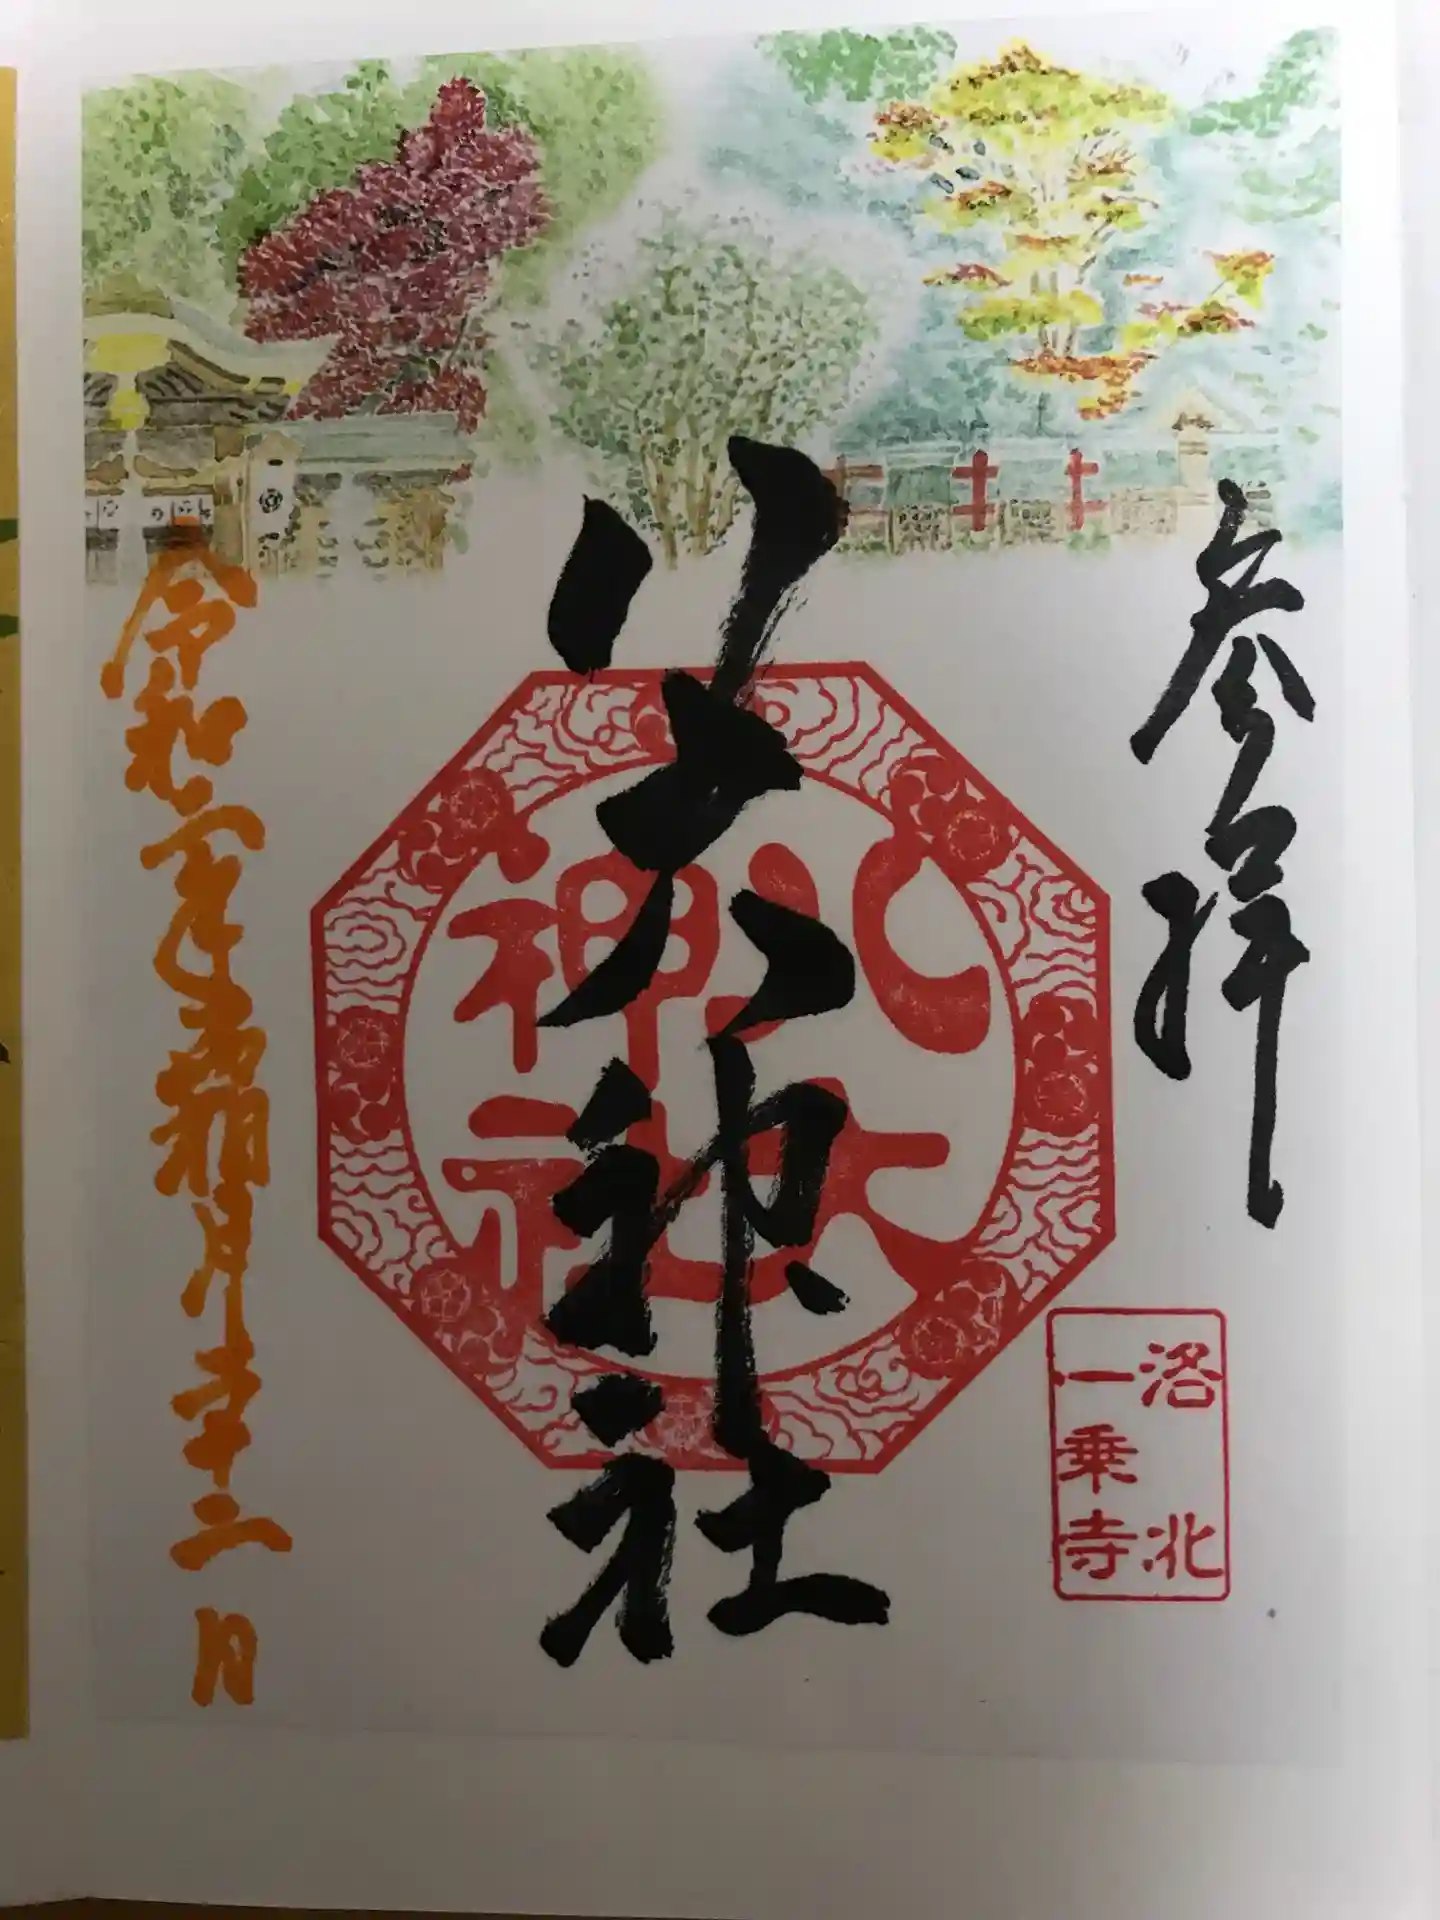 参拝
八大神社
八大神社
洛北
一乗寺
令和
年霜月
二日